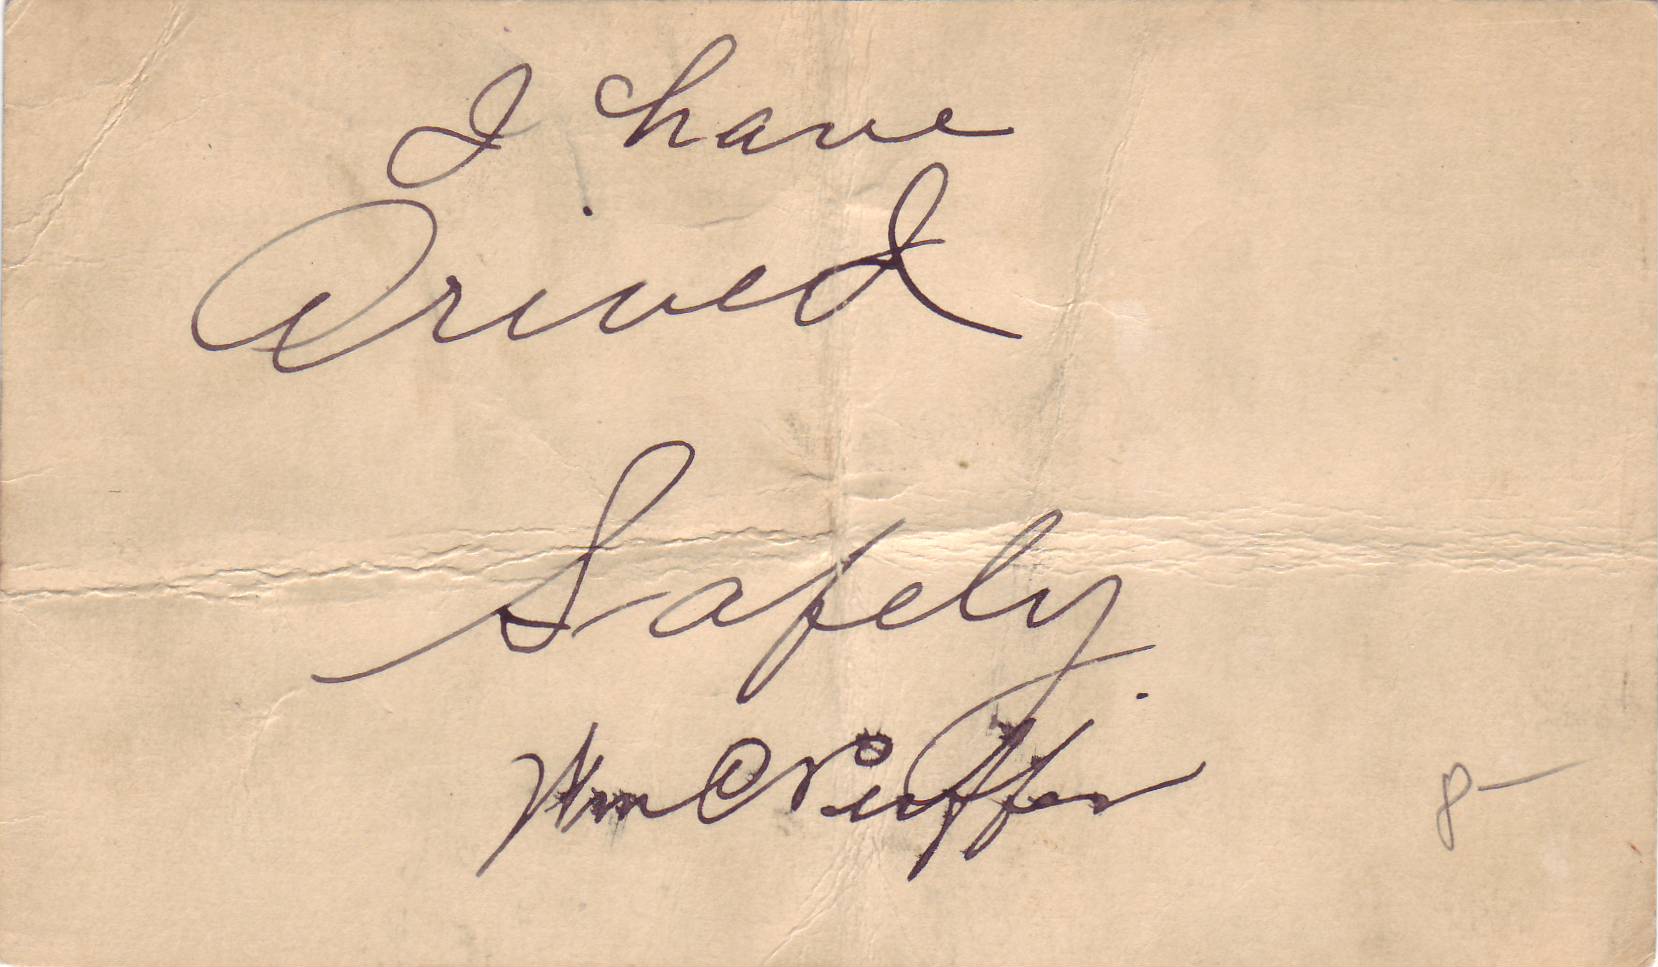 I have
Arived
Safely
Wm C Ruffin
8-